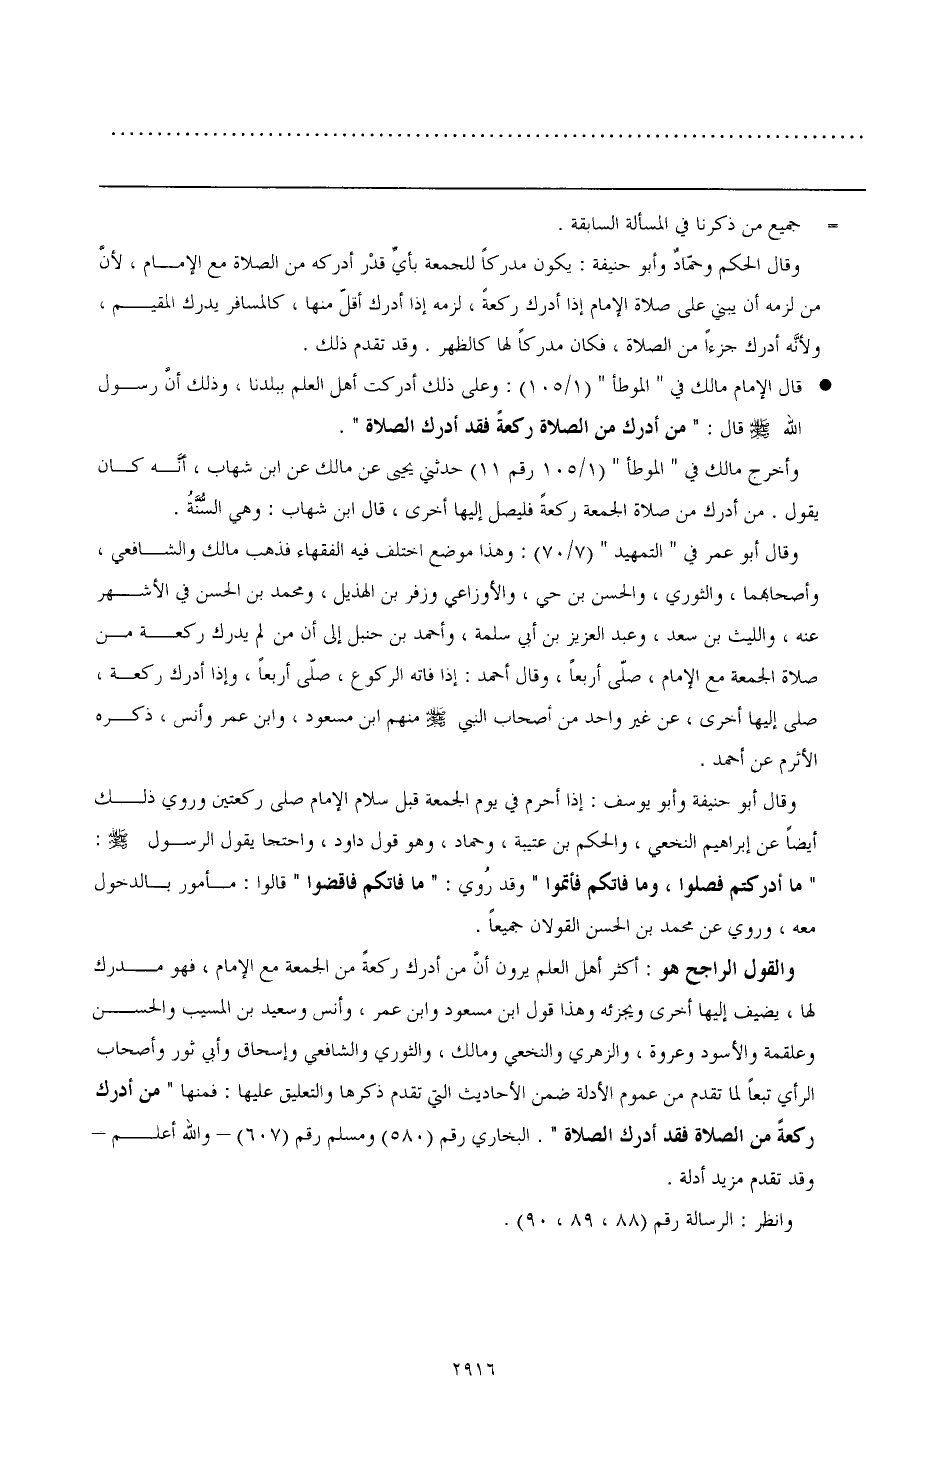 = جميع من ذكرنا في المسألة السابقة .
وقال الحكم وحمّادٌ وأبو حنيفة : يكون مدركاً للجمعة بأيِّ قدْر أدركه من الصلاة مع الإمـــام ، لأنَّ
من لزمه أن يبني على صلاة الإمام إذا أدرك ركعةً ، لزمه إذا أدرك أقلّ منها ، كالمسافر يدرك المقيـــم ،
ولأنَّه أدرك جزءاً من الصلاة ، فكان مدركاً لها كالظهر . وقد تقدم ذلك .
● قال الإمام مالك في " الموطأ " (١٠٥/١) : وعلى ذلك أدركت أهل العلم ببلدنا ، وذلك أنَّ رســول
الله ﷺ قال : " من أدرك من الصلاة ركعةً فقد أدرك الصلاة " .
وأخرج مالك في " الموطأ " (١٠٥/١ رقم ١١) حدثني يحيى عن مالك عن ابن شهاب ، أنَّـــه كــان
يقول . من أدرك من صلاة الجمعة ركعةً فليصل إليها أخرى ، قال ابن شهاب : وهي السُّنَّةُ .
وقال أبو عمر في " التمهيد " (٧٠/٧) : وهذا موضع اختلف فيه الفقهاء فذهب مالك والشـــافعي ،
وأصحابهما ، والثوري ، والحسن بن حي ، والأوزاعي وزفر بن الهذيل ، ومحمد بن الحسن في الأشـــهر
عنه ، والليث بن سعد ، وعبد العزيز بن أبي سلمة ، وأحمد بن حنبل إلى أن من لم يدرك ركعـــة مـــن
صلاة الجمعة مع الإمام ، صلّى أربعاً ، وقال أحمد : إذا فاته الركوع ، صلّى أربعاً ، وإذا أدرك ركعـــة ،
صلى إليها أخرى ، عن غير واحد من أصحاب النبي ﷺ منهم ابن مسعود ، وابن عمر وأنس ، ذكــره
الأثرم عن أحمد .
وقال أبو حنيفة وأبو يوسف : إذا أحرم في يوم الجمعة قبل سلام الإمام صلى ركعتين وروي ذلـــك
أيضاً عن إبراهيم النخعي ، والحكم بن عتيبة ، وحماد ، وهو قول داود ، واحتجا بقول الرســول ﷺ :
" ما أدركتم فصلوا ، وما فاتكم فأتموا " وقد رُوي : " ما فاتكم فاقضوا " قالوا : مـــأمور بـــالدخول
معه ، وروي عن محمد بن الحسن القولان جميعاً .
والقول الراجح هو : أكثر أهل العلم يرون أنَّ من أدرك ركعةً من الجمعة مع الإمام ، فهو مـــدرك
لها ، يضيف إليها أخرى ويجزئه وهذا قول ابن مسعود وابن عمر ، وأنس وسعيد بن المسيب والحســـن
وعلقمة والأسود وعروة ، والزهري والنخعي ومالك ، والثوري والشافعي وإسحاق وأبي ثور وأصحاب
الرأي تبعاً لما تقدم من عموم الأدلة ضمن الأحاديث التي تقدم ذكرها والتعليق عليها : فمنها " من أدرك
ركعةً من الصلاة فقد أدرك الصلاة " . البخاري رقم (٥٨٠) ومسلم رقم (٦٠٧) – والله أعلـــم –
وقد تقدم مزيد أدلة .
وانظر : الرسالة رقم (٨٨ ، ٨٩ ، ٩٠) .
٢٩١٦